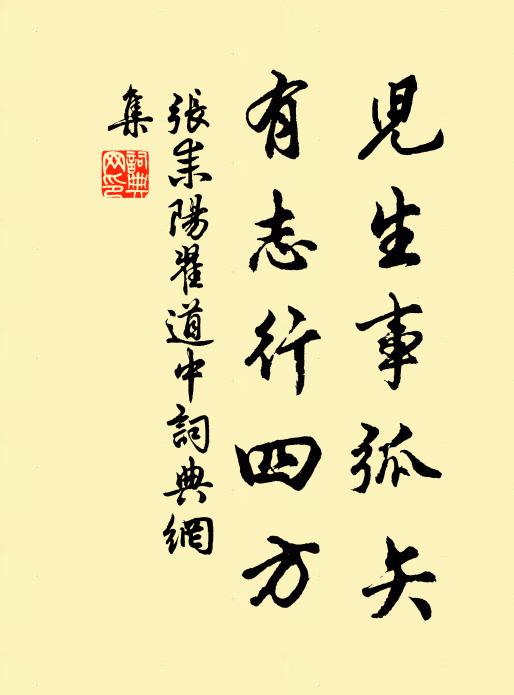 兒生事弧矢
有志行四方
張耒陽翟道中詞典網
集
詞典
网印